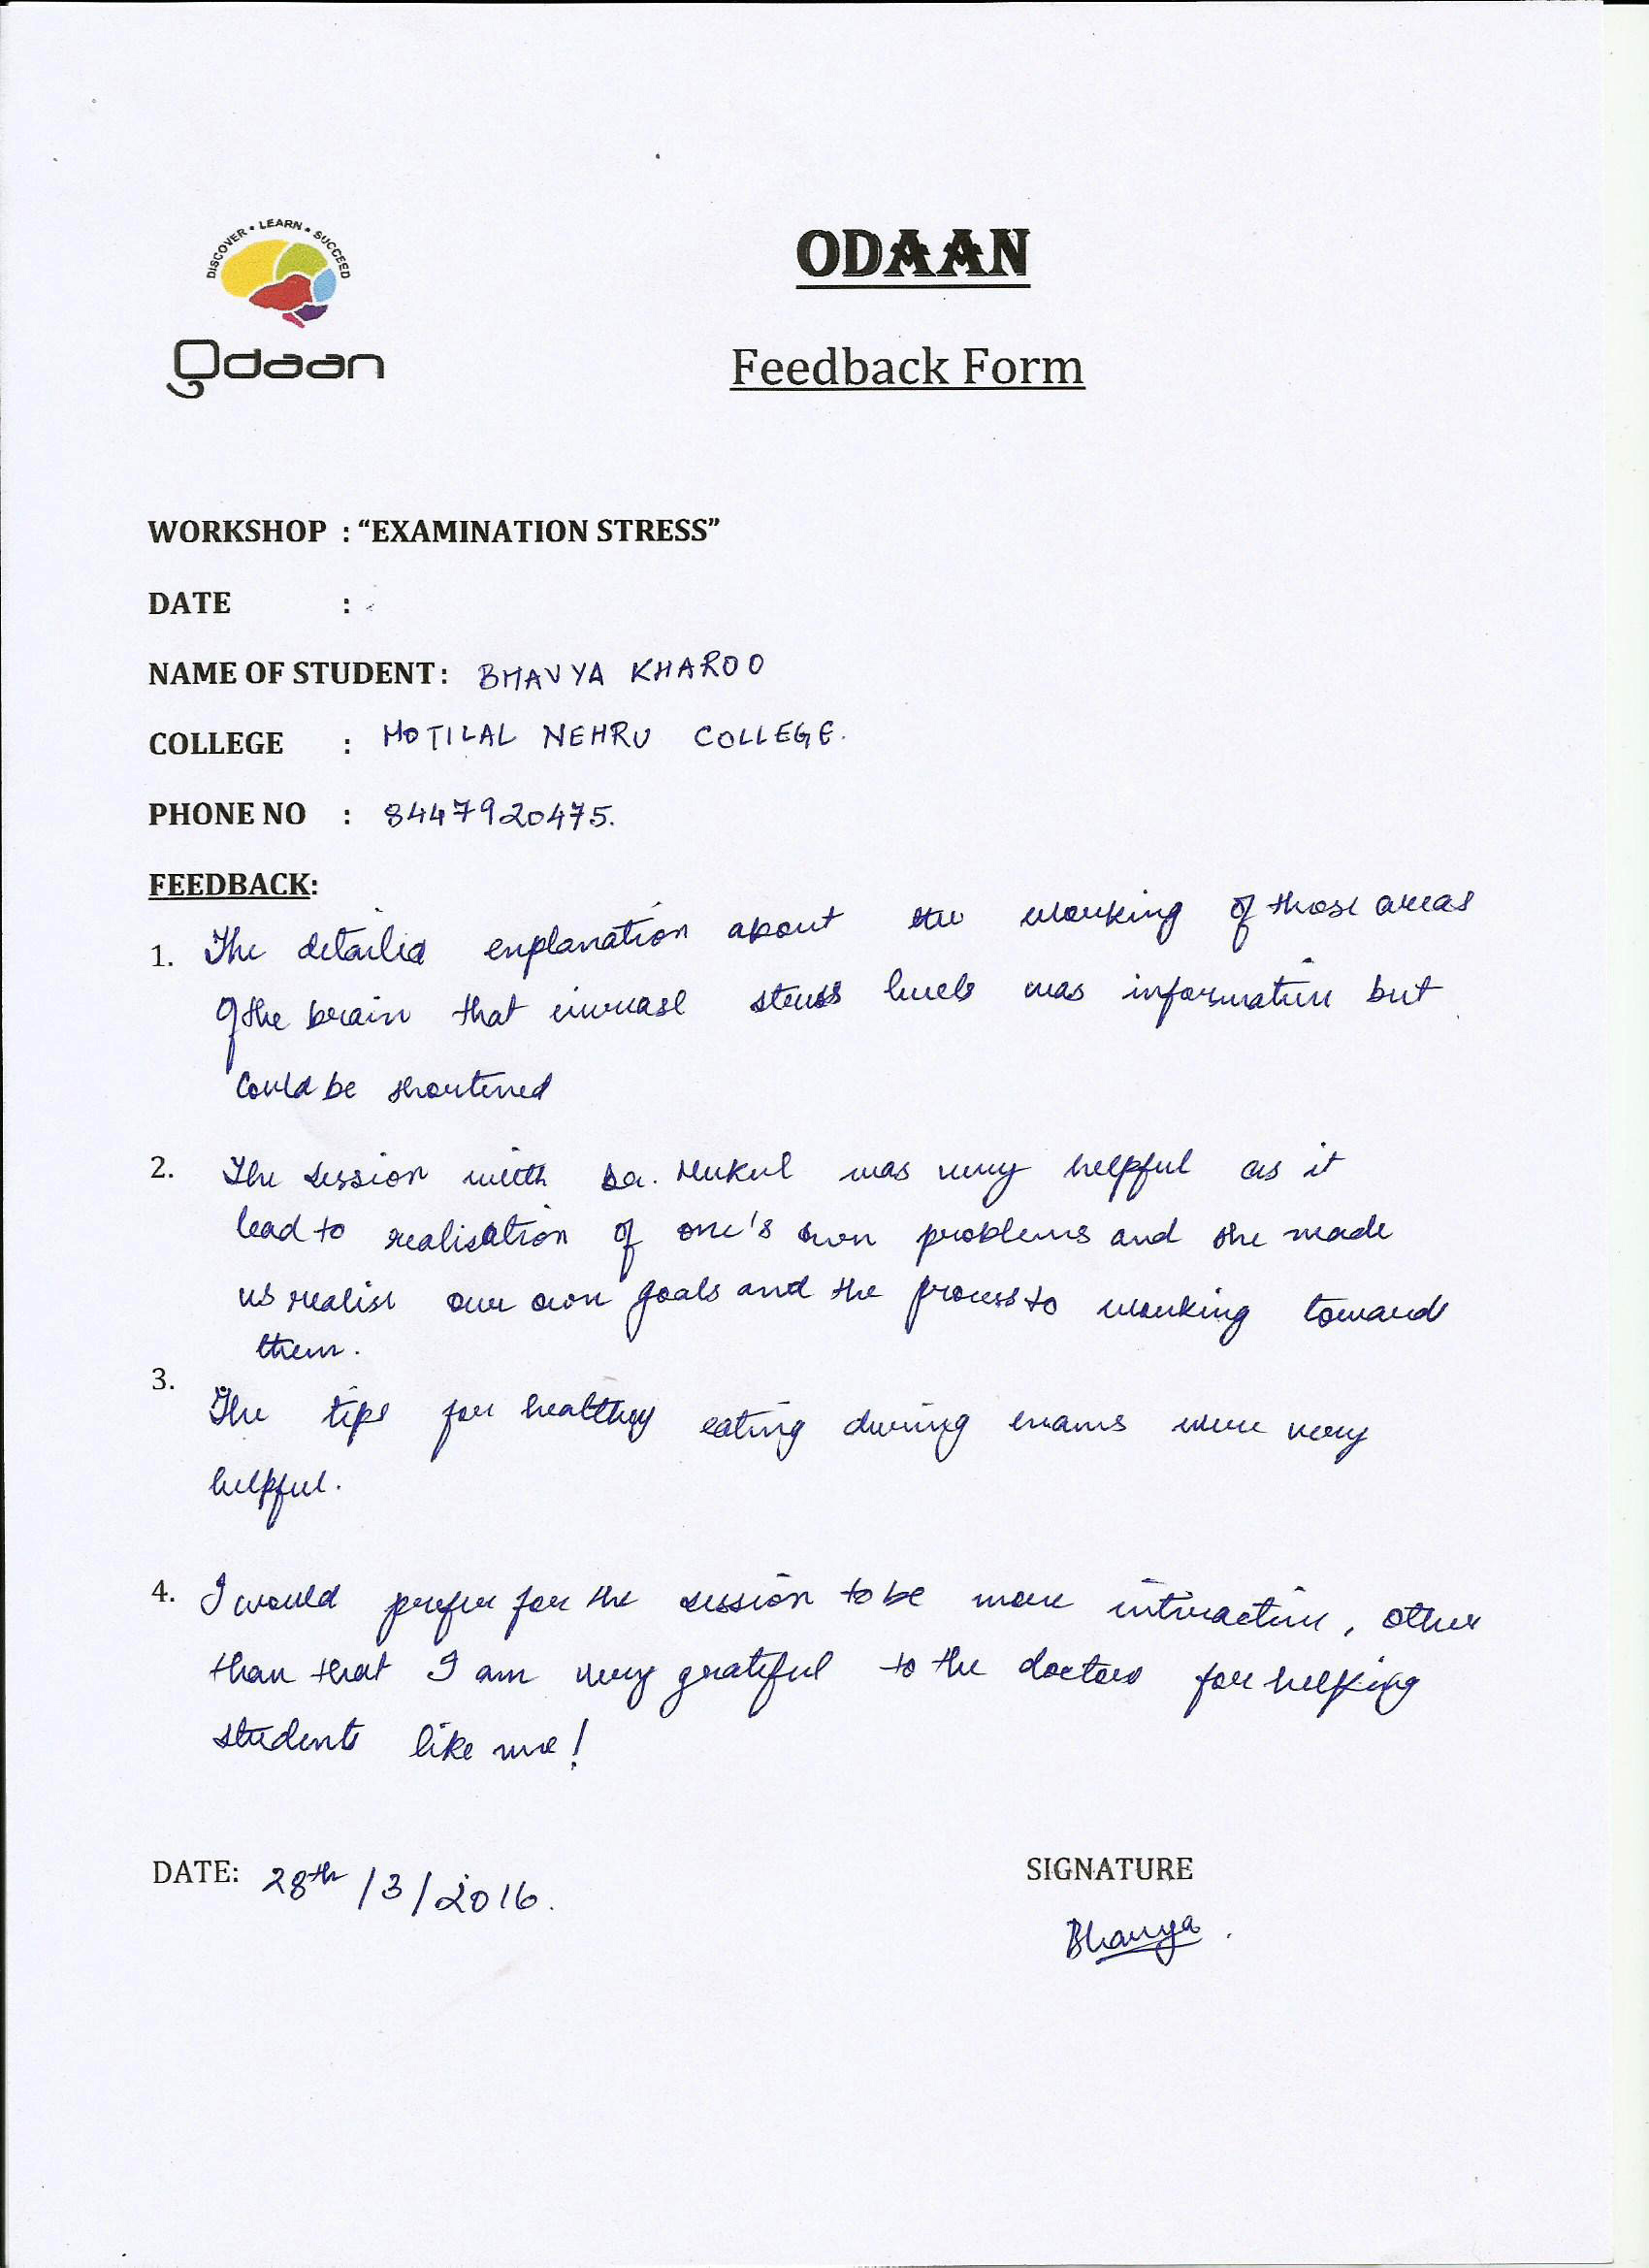 DISCOVER • LEARN • SUCCEED
Odaan
ODAAN
Feedback Form
WORKSHOP : “EXAMINATION STRESS”
DATE :
NAME OF STUDENT: BHAVYA KHAROO
COLLEGE : MOTILAL NEHRU COLLEGE.
PHONE NO : 8447920475.
FEEDBACK:
1. The detailed explanation about the working of those areas
of the brain that increase stress levels was informative but
could be shortened
2. The session with Dr. Mukul was very helpful as it
lead to realisation of one's own problems and she made
us realise our own goals and the process to working towards
them.
3.
The tips for healthy eating during exams were very
helpful.
4. I would prefer for the session to be more interactive, other
than that I am very grateful to the doctors for helping
students like me!
DATE: 28th /3/2016.
SIGNATURE
Bhavya.